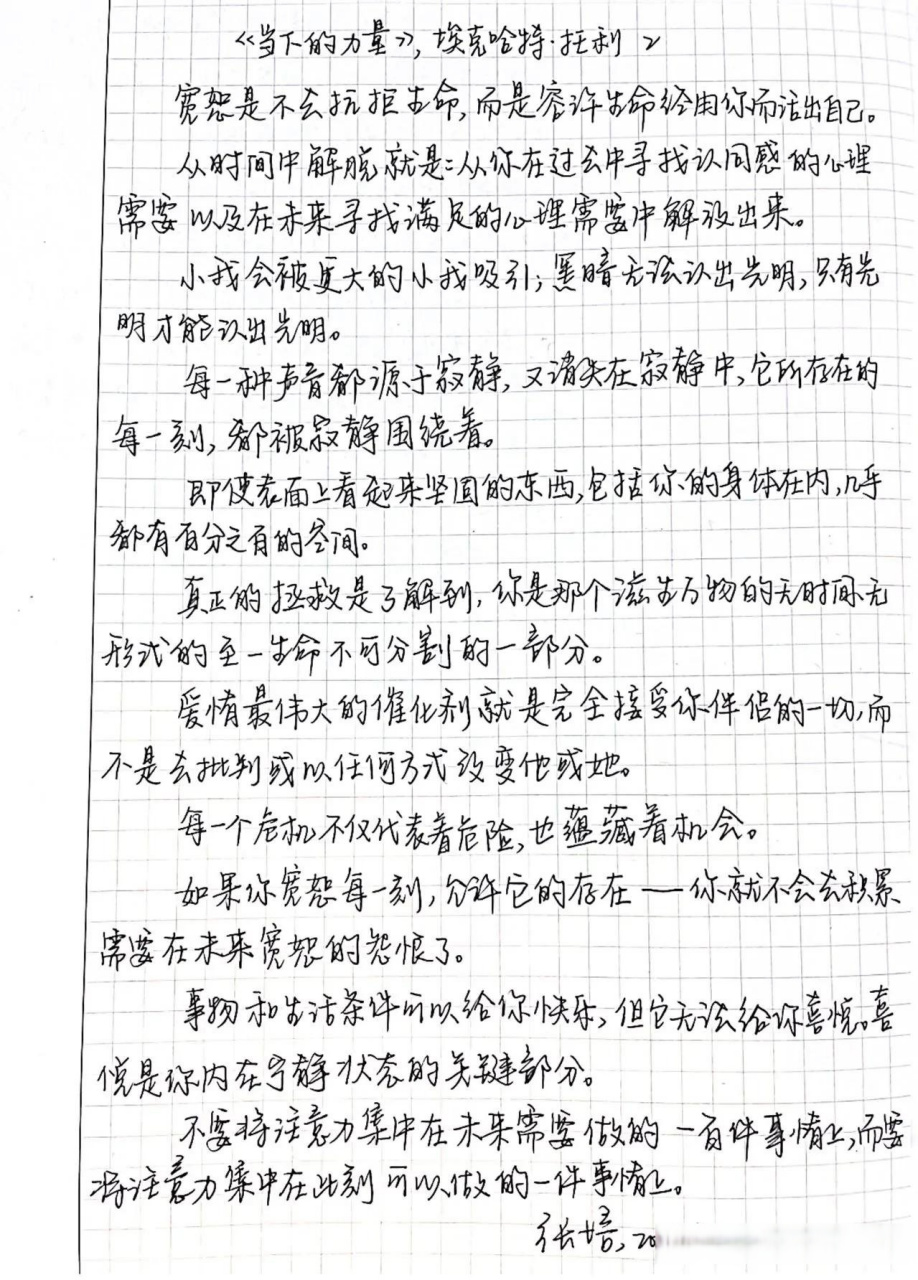 《当下的力量》，埃克哈特·托利 2
宽恕是不去抗拒生命，而是容许生命经用你而活出自己。
从时间中解脱就是：从你在过去中寻找认同感的心理
需要以及在未来寻找满足的心理需要中解放出来。
小我会被更大的小我吸引；黑暗无法认出光明，只有光
明才能认出光明。
每一种声音都源于寂静，又消失在寂静中，它所存在的
每一刻，都被寂静围绕着。
即使表面上看起来坚固的东西，包括你的身体在内，几乎
都有百分之百的空间。
真正的拯救是了解到，你是那个滋生万物的无时间无
形式的至一生命不可分割的一部分。
爱情最伟大的催化剂就是完全接受你伴侣的一切，而
不是去批判或以任何方式改变他或她。
每一个危机不仅代表着危险，也蕴藏着机会。
如果你宽恕每一刻，允许它的存在——你就不会去积累
需要在未来宽恕的怨恨了。
事物和生活条件可以给你快乐，但它无法给你喜悦。喜
悦是你内在宁静状态的关键部分。
不要将注意力集中在未来需要做的一百件事情上，而要
将注意力集中在此刻可以做的一件事情上。
张培，20